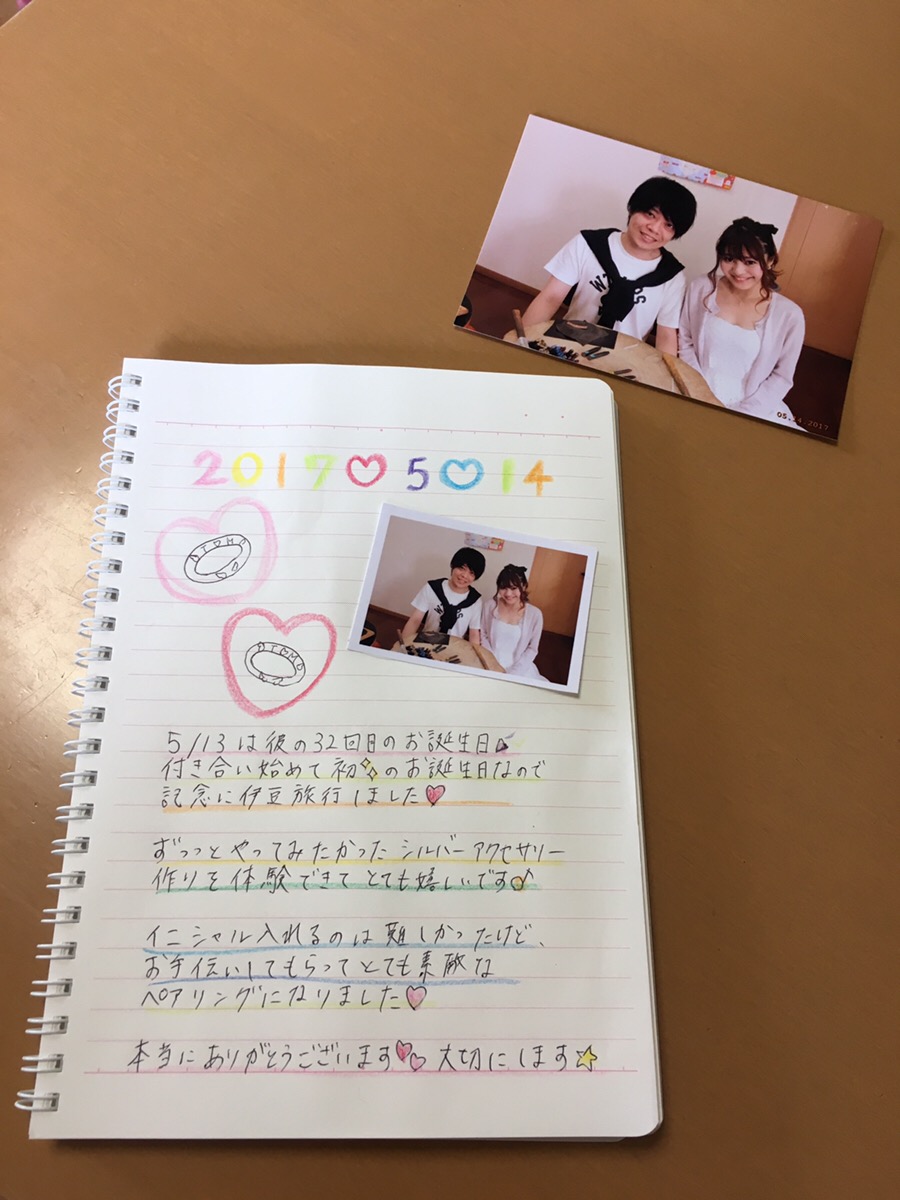 05.14.2017
2017♡5♡14
5/13は彼の32回目のお誕生日
付き合い始めて初✨のお誕生日なので
記念に伊豆旅行しました♥
ずっっとやってみたかったシルバーアクセサリー
作りを体験できてとても嬉しいです♪
イニシャル入れるのは難しかったけど、
お手伝いしてもらってとても素敵な
ペアリングになりました♥
本当にありがとうございます♥♥大切にします☆